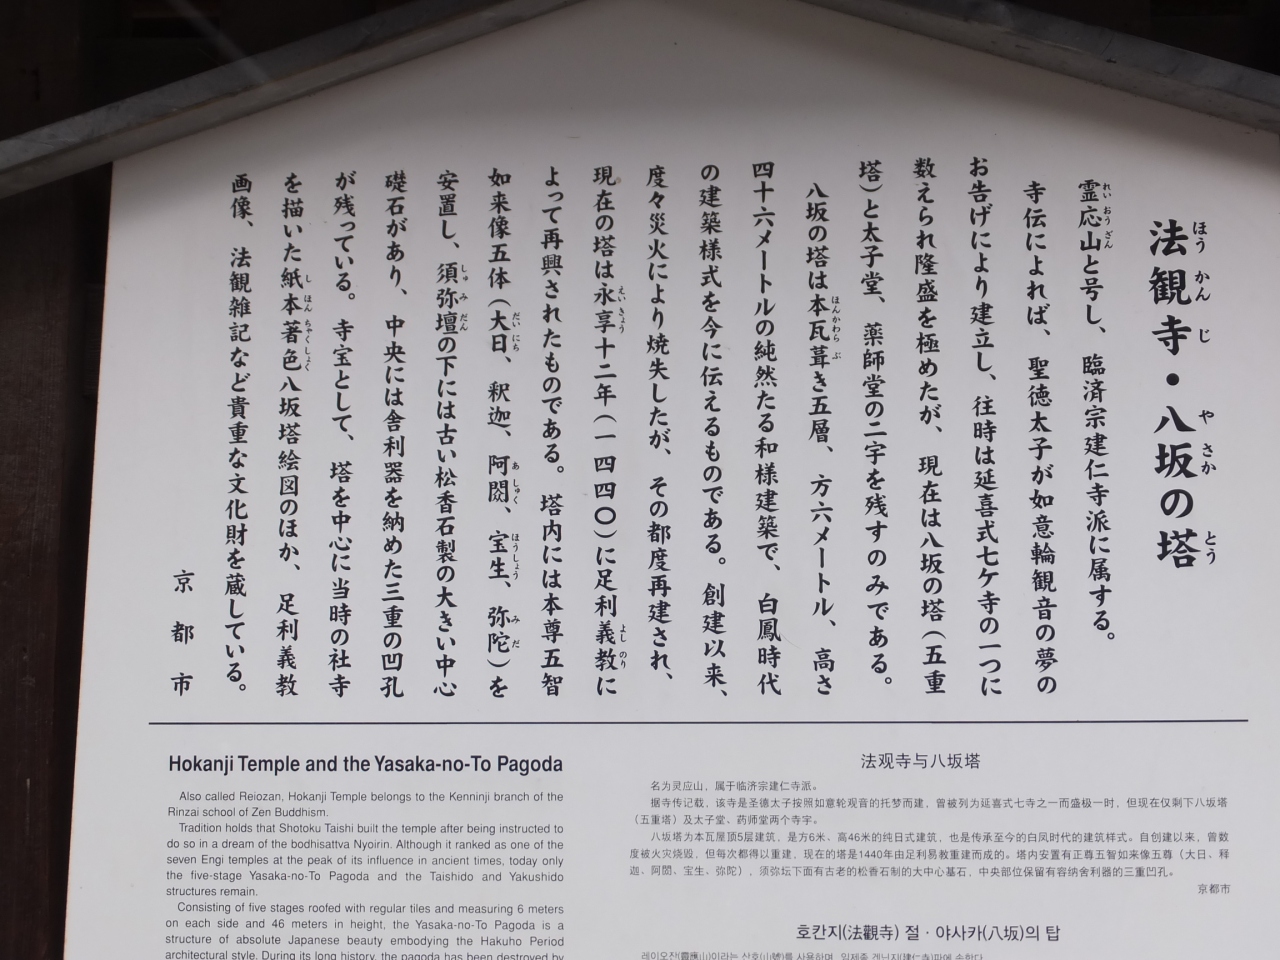 法観寺・八坂の塔
ほうかんじ やさか とう
霊応山と号し、臨済宗建仁寺派に属する。
れいおうざん
寺伝によれば、聖徳太子が如意輪観音の夢の
お告げにより建立し、往時は延喜式七ケ寺の一つに
数えられ隆盛を極めたが、現在は八坂の塔(五重
塔)と太子堂、薬師堂の二宇を残すのみである。
八坂の塔は本瓦葺き五層、方六メートル、高さ
ほんかわらぶ
四十六メートルの純然たる和様建築で、白鳳時代
の建築様式を今に伝えるものである。創建以来、
度々災火により焼失したが、その都度再建され、
現在の塔は永享十二年(一四四〇)に足利義教に
えいきょう よしのり
よって再興されたものである。塔内には本尊五智
如来像五体(大日、釈迦、阿閦、宝生、弥陀)を
だいにち あしゅく ほうしょう みだ
安置し、須弥壇の下には古い松香石製の大きい中心
しゅみだん
礎石があり、中央には舎利器を納めた三重の凹孔
が残っている。寺宝として、塔を中心に当時の社寺
を描いた紙本著色八坂塔絵図のほか、足利義教
しほんちゃくしょく
画像、法観雑記など貴重な文化財を蔵している。
京都市
Hokanji Temple and the Yasaka-no-To Pagoda
Also called Reiozan, Hokanji Temple belongs to the Kenninji branch of the
Rinzai school of Zen Buddhism.
Tradition holds that Shotoku Taishi built the temple after being instructed to
do so in a dream of the bodhisattva Nyoirin. Although it ranked as one of the
seven Engi temples at the peak of its influence in ancient times, today only
the five-stage Yasaka-no-To Pagoda and the Taishido and Yakushido
structures remain.
Consisting of five stages roofed with regular tiles and measuring 6 meters
on each side and 46 meters in height, the Yasaka-no-To Pagoda is a
structure of absolute Japanese beauty embodying the Hakuho Period
architectural style. During its long history, the pagoda has been destroyed by
法观寺与八坂塔
名为灵应山，属于临济宗建仁寺派。
据寺传记载，该寺是圣德太子按照如意轮观音的托梦而建，曾被列为延喜式七寺之一而盛极一时，但现在仅剩下八坂塔
（五重塔）及太子堂、药师堂两个寺宇。
八坂塔为本瓦屋顶5层建筑，是方6米、高46米的纯日式建筑，也是传承至今的白凤时代的建筑样式。自创建以来，曾数
度被火灾烧毁，但每次都得以重建，现在的塔是1440年由足利易教重建而成的。塔内安置有正尊五智如来像五尊（大日、释
迦、阿閦、宝生、弥陀），须弥坛下面有古老的松香石制的大中心基石，中央部位保留有容纳舍利器的三重凹孔。
京都市
호칸지(法觀寺) 절・야사카(八坂)의 탑
레이오잔(靈應山)이라는 산호(山號)를 사용하며, 임제종 겐닌지(建仁寺)파에 속한다.